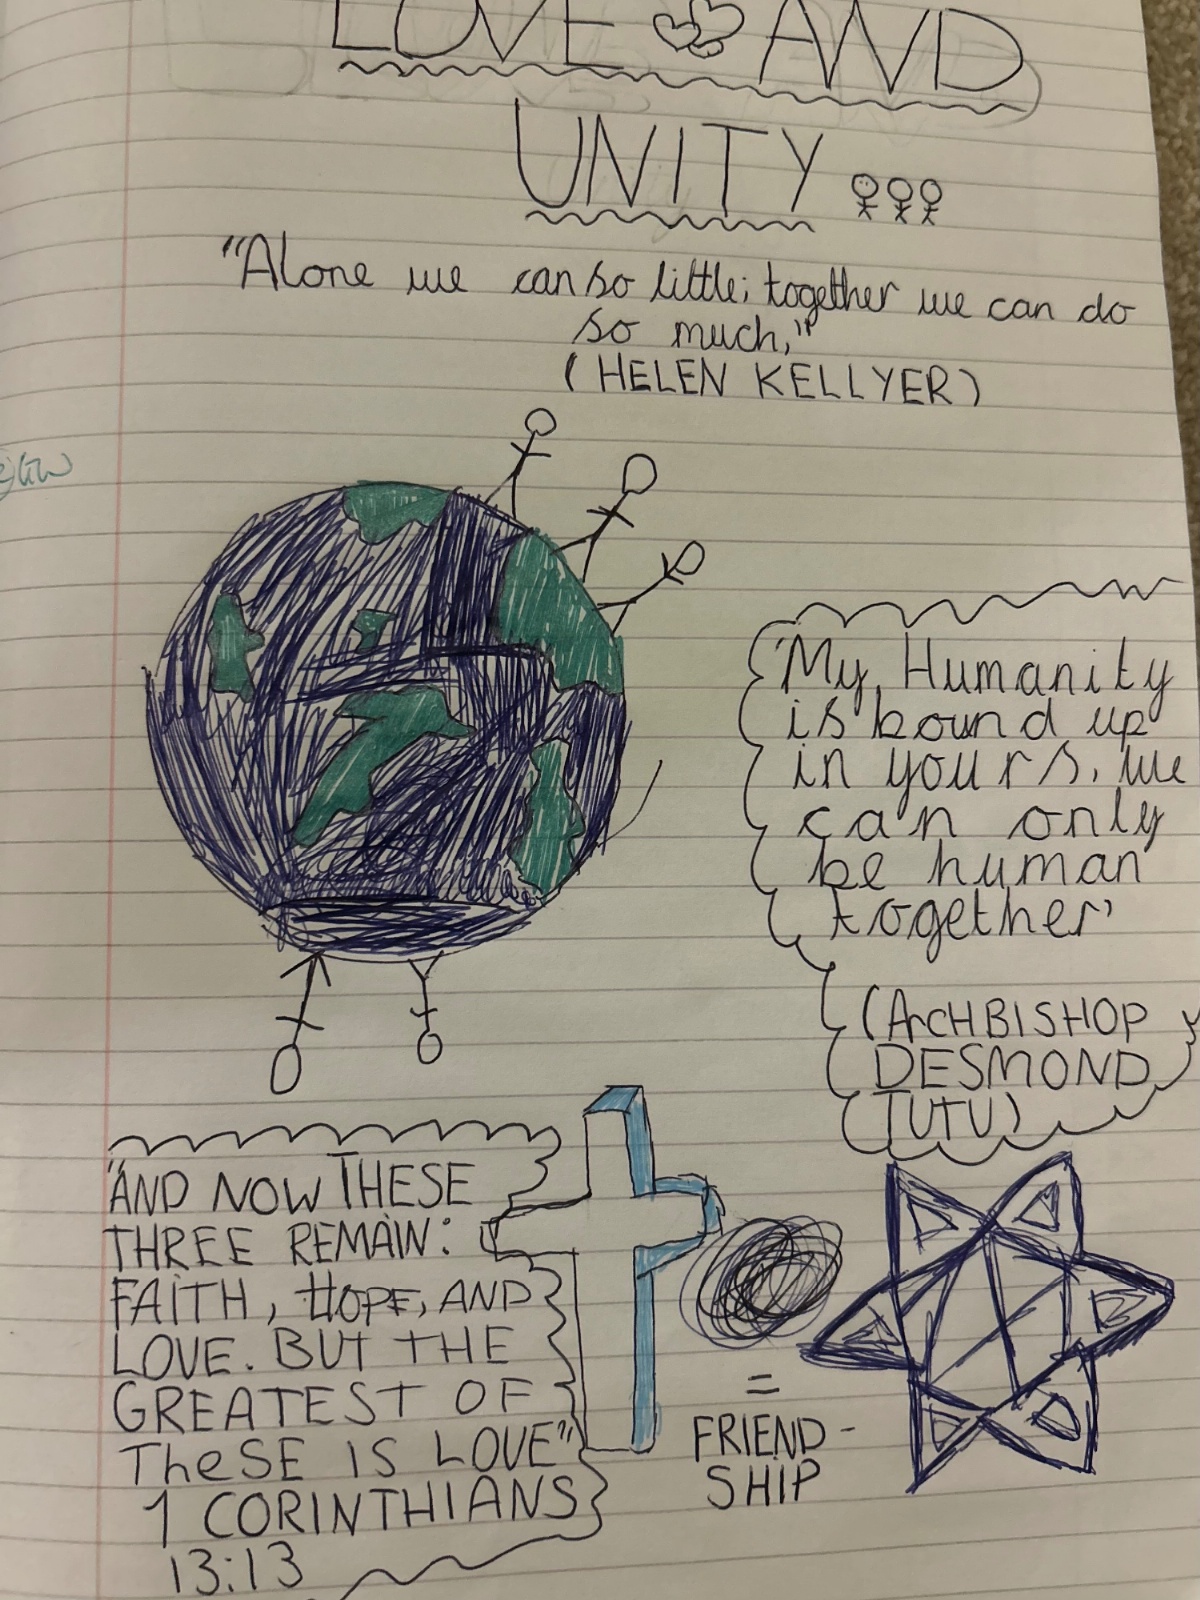 LOVE AND
UNITY
"Alone we can so little; together we can do
so much,"
(HELEN KELLYER)
'My Humanity
is bound up
in yours. We
can only
be human
together'
(ArcHBISHOP
DESMOND
TUTU)
"AND NOW THESE
THREE REMAIN:
FAITH, HOPE, AND
LOVE. BUT THE
GREATEST OF
TheSE IS LOVE"
1 CORINTHIANS
13:13
=
FRIEND-
SHIP